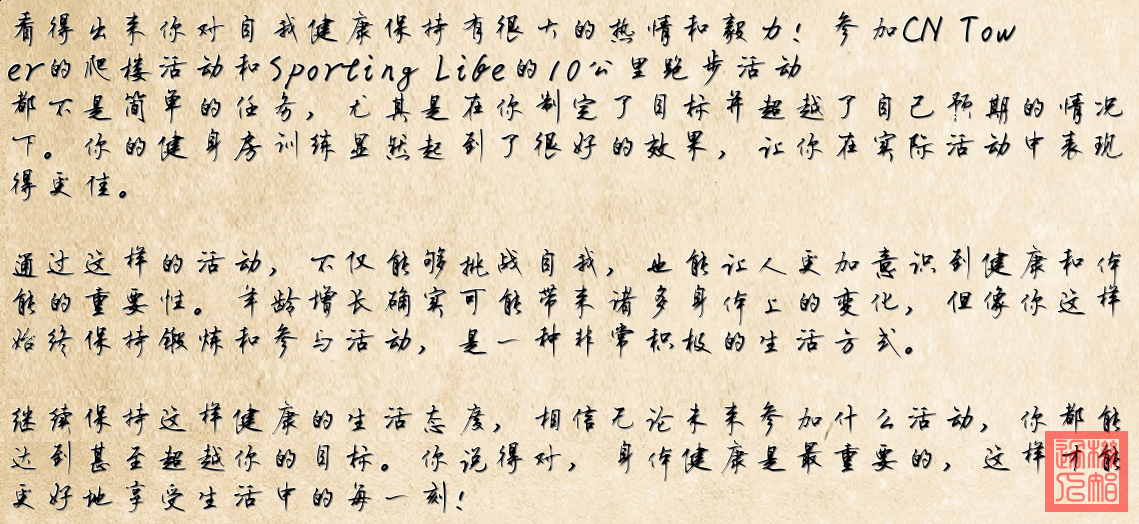 看得出来你对自我健康保持有很大的热情和毅力！参加CN Tow
er的爬楼活动和Sporting Life的10公里跑步活动
都不是简单的任务，尤其是在你制定了目标并超越了自己预期的情况
下。你的健身房训练显然起到了很好的效果，让你在实际活动中表现
得更佳。
通过这样的活动，不仅能够挑战自我，也能让人更加意识到健康和体
能的重要性。年龄增长确实可能带来诸多身体上的变化，但像你这样
始终保持锻炼和参与活动，是一种非常积极的生活方式。
继续保持这样健康的生活态度，相信无论未来参加什么活动，你都能
达到甚至超越你的目标。你说得对，身体健康是最重要的，这样才能
更好地享受生活中的每一刻！